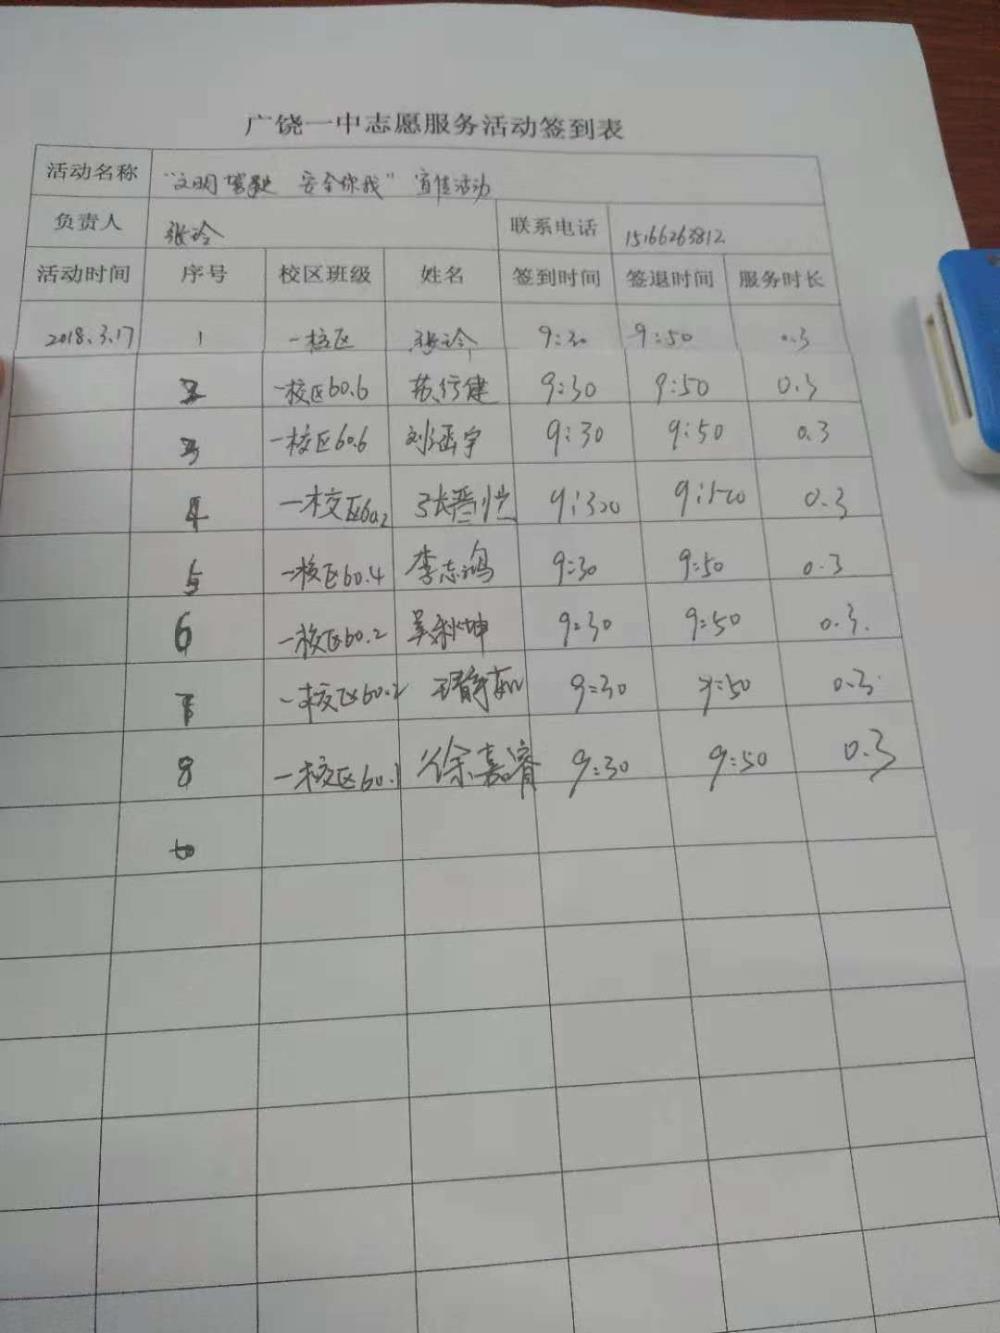 广饶一中志愿服务活动签到表
活动名称 “文明驾驶 安全你我”宣传活动
负责人 张玲 联系电话 15166263812
活动时间 序号 校区班级 姓名 签到时间 签退时间 服务时长
2018.3.17 1 一校区 张玲 9:30 9:50 0.3
2 一校区60.6 苏行健 9:30 9:50 0.3
3 一校区60.6 刘涵宇 9:30 9:50 0.3
4 一校区60.2 张晋恺 9:30 9:50 0.3
5 一校区60.4 李志鸿 9:30 9:50 0.3
6 一校区60.2 吴秋坤 9:30 9:50 0.3.
7 一校区60.2 静茹 9:30 9:50 0.3
8 一校区60.1 徐嘉睿 9:30 9:50 0.3